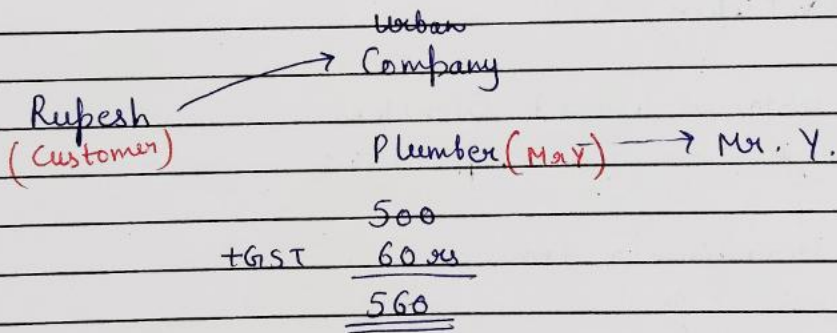 Urban
Company
Rupesh
(Customer)
Plumber (Mr Y) → Mr. Y.
500
+GST 60 rs
560